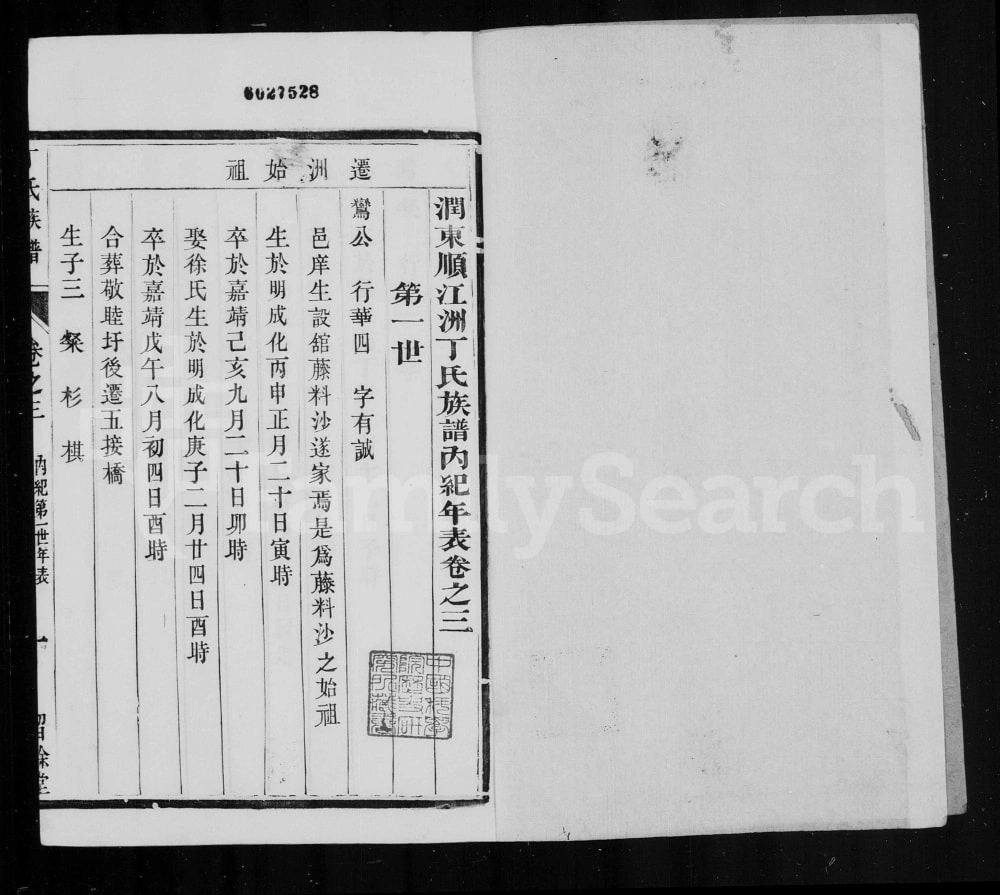 6027528
潤東順江洲丁氏族譜內紀年表卷之三
第一世
遷洲始祖
鸞公 行華四 字有誠
邑庠生設舘藤料沙遂家焉是爲藤料沙之始祖
生於明成化丙申正月二十日寅時
卒於嘉靖己亥九月二十日卯時
娶徐氏生於明成化庚子二月廿四日酉時
卒於嘉靖戊午八月初四日酉時
合葬敬睦圩後遷五接橋
生子三 粲 杉 棋
丁氏族譜 卷之三 內紀第一世年表 一 留餘堂
中國科學院歷史研究所藏書
FamilySearch